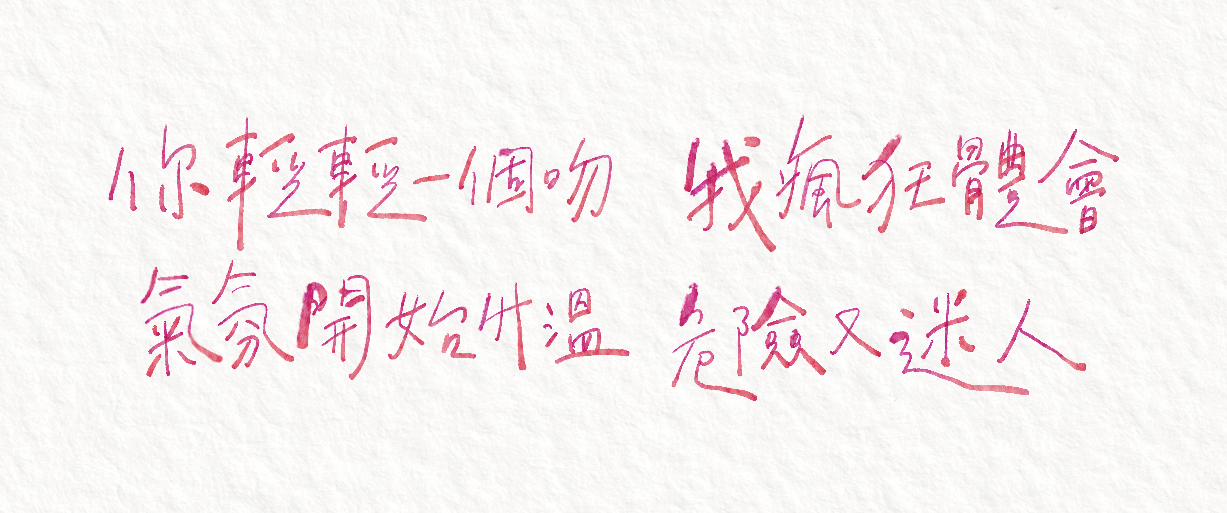 你輕輕一個吻 我瘋狂體會
氣氛開始升溫 危險又迷人